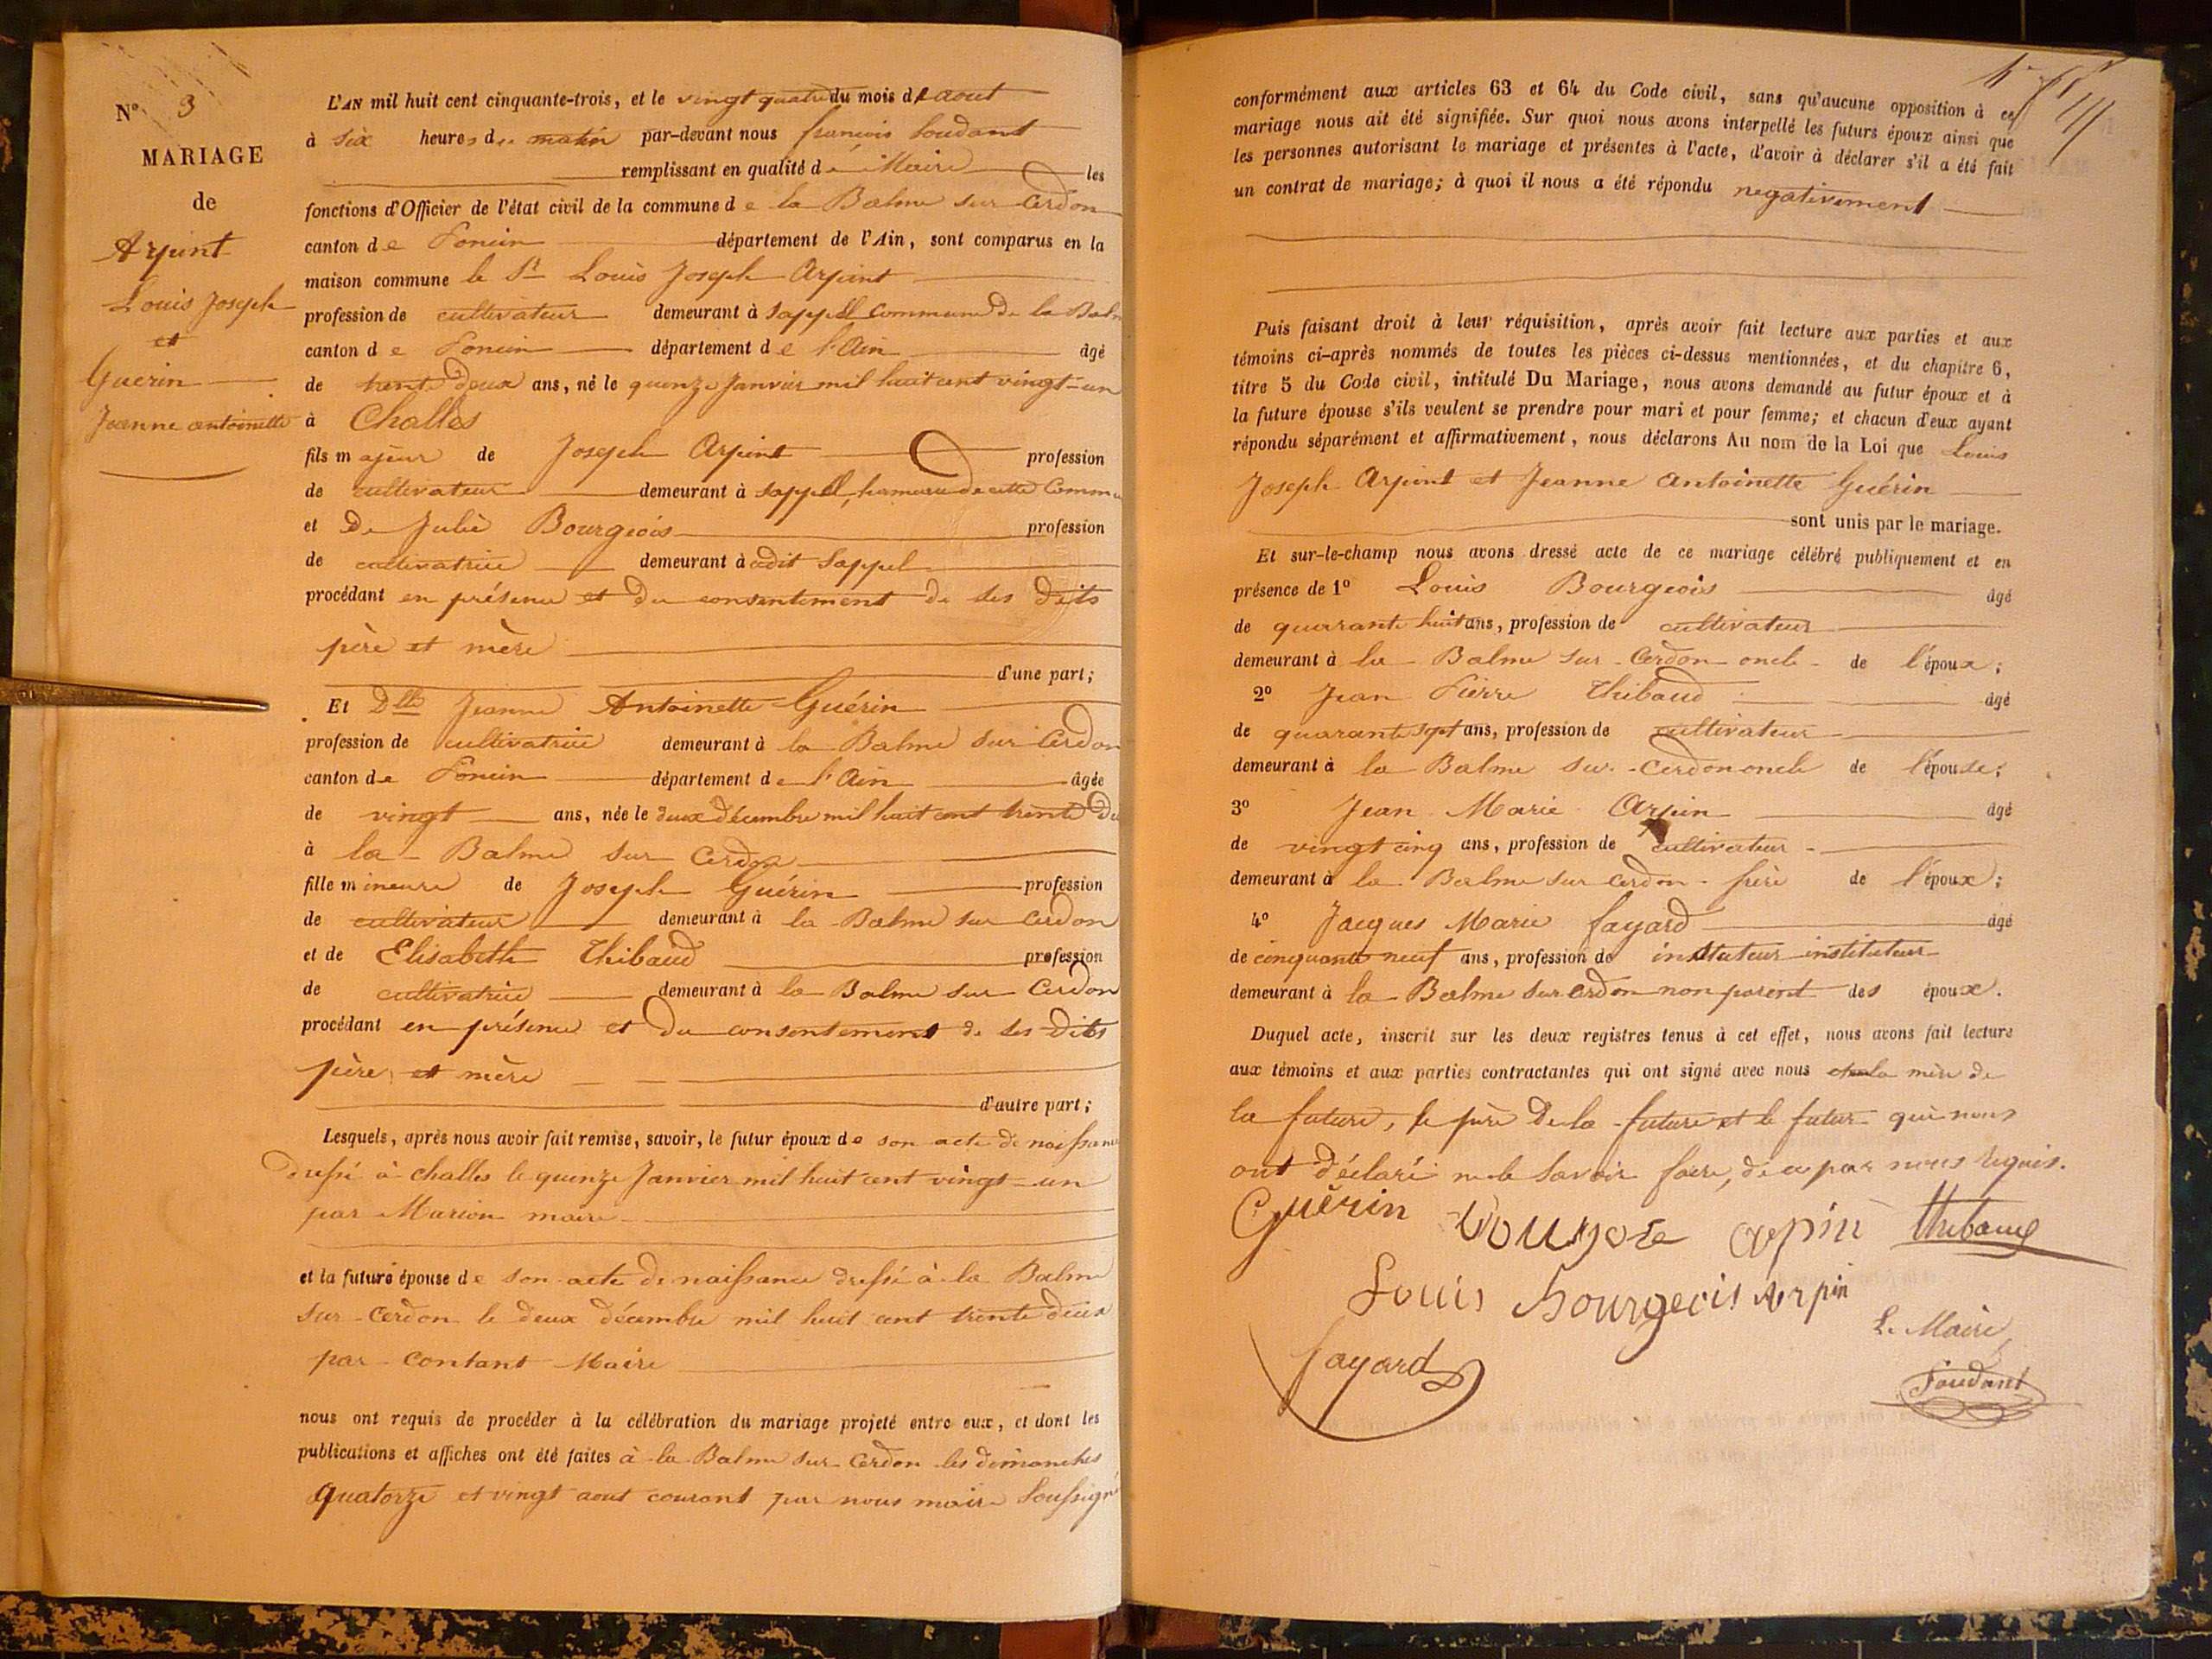 N° 3
MARIAGE
de
Arpint
Louis Joseph
et
Guerin
Jeanne antoinette
L'AN mil huit cent cinquante-trois, et le vingt quatre du mois d'aout
à six heures du matin par-devant nous françois Soudant
remplissant en qualité de Maire les
fonctions d'Officier de l'état civil de la commune de la Balme sur Cerdon
canton de Poncin département de l'Ain, sont comparus en la
maison commune le Sr Louis Joseph Arpint
profession de cultivateur demeurant à Sappel commune de la Balm
canton de Poncin département de l'Ain âgé
de trente deux ans, né le quinze Janvier mil huit cent vingt-un
à Challes
fils majeur de Joseph Arpint profession
de cultivateur demeurant à Sappel, hameau de cette Commu
et De Julie Bourgeois profession
de cultivatrice demeurant à udit Sappel
procédant en présence et du consentement de ses dits
père et mère
d'une part;
Et Dlle Jeanne Antoinette Guérin
profession de cultivatrice demeurant à la Balme sur Cerdon
canton de Poncin département de l'Ain âgée
de vingt ans, née le deux décembre mil huit cent trente De
à la Balme sur Cerdon
fille mineure de Joseph Guérin profession
de cultivateur demeurant à la Balme sur Cerdon
et de Elisabeth Thibaud profession
de cultivatrice demeurant à la Balme sur Cerdon
procédant en présence et du consentement de ses dits
père et mère
d'autre part;
Lesquels, après nous avoir fait remise, savoir, le futur époux de son acte de naissance
dressé à challes le quinze Janvier mil huit cent vingt-un
par Marion maire
et la future épouse de son acte de naissance dressé à la Balme
sur Cerdon le deux décembre mil huit cent trente deux
par Contant Maire
nous ont requis de procéder à la célébration du mariage projeté entre eux, et dont les
publications et affiches ont été faites à la Balme sur Cerdon les dimanches
quatorze et vingt aout courant par nous maire Soussigné
conformément aux articles 63 et 64 du Code civil, sans qu'aucune opposition à ce
mariage nous ait été signifiée. Sur quoi nous avons interpellé les futurs époux ainsi que
les personnes autorisant le mariage et présentes à l'acte, d'avoir à déclarer s'il a été fait
un contrat de mariage; à quoi il nous a été répondu negativement
Puis faisant droit à leur réquisition, après avoir fait lecture aux parties et aux
témoins ci-après nommés de toutes les pièces ci-dessus mentionnées, et du chapitre 6,
titre 5 du Code civil, intitulé Du Mariage, nous avons demandé au futur époux et à
la future épouse s'ils veulent se prendre pour mari et pour femme; et chacun d'eux ayant
répondu séparément et affirmativement, nous déclarons Au nom de la Loi que Louis
Joseph Arpint et Jeanne Antoinette Guérin
sont unis par le mariage.
Et sur-le-champ nous avons dressé acte de ce mariage célébré publiquement et en
présence de 1° Louis Bourgeois âgé
de quarante huit ans, profession de cultivateur
demeurant à la Balme sur Cerdon oncle de l'époux;
2° Jean Pierre Thibaud âgé
de quarante sept ans, profession de cultivateur
demeurant à la Balme sur Cerdon oncle de l'épouse;
3° Jean Marie Arpin âgé
de vingt cinq ans, profession de cultivateur
demeurant à la Balme sur Cerdon frère de l'époux;
4° Jacques Marie fayard âgé
de cinquante neuf ans, profession de instituteur instituteur
demeurant à la Balme sur Cerdon non parent des époux.
Duquel acte, inscrit sur les deux registres tenus à cet effet, nous avons fait lecture
aux témoins et aux parties contractantes qui ont signé avec nous la mère de
la future, le père de la future et le futur qui nous
ont déclaré ne le savoir faire, de ce par nous requis.
Guérin arpin thibaud
Louis bourgeois Arpin
Le Maire
fayard
Soudant